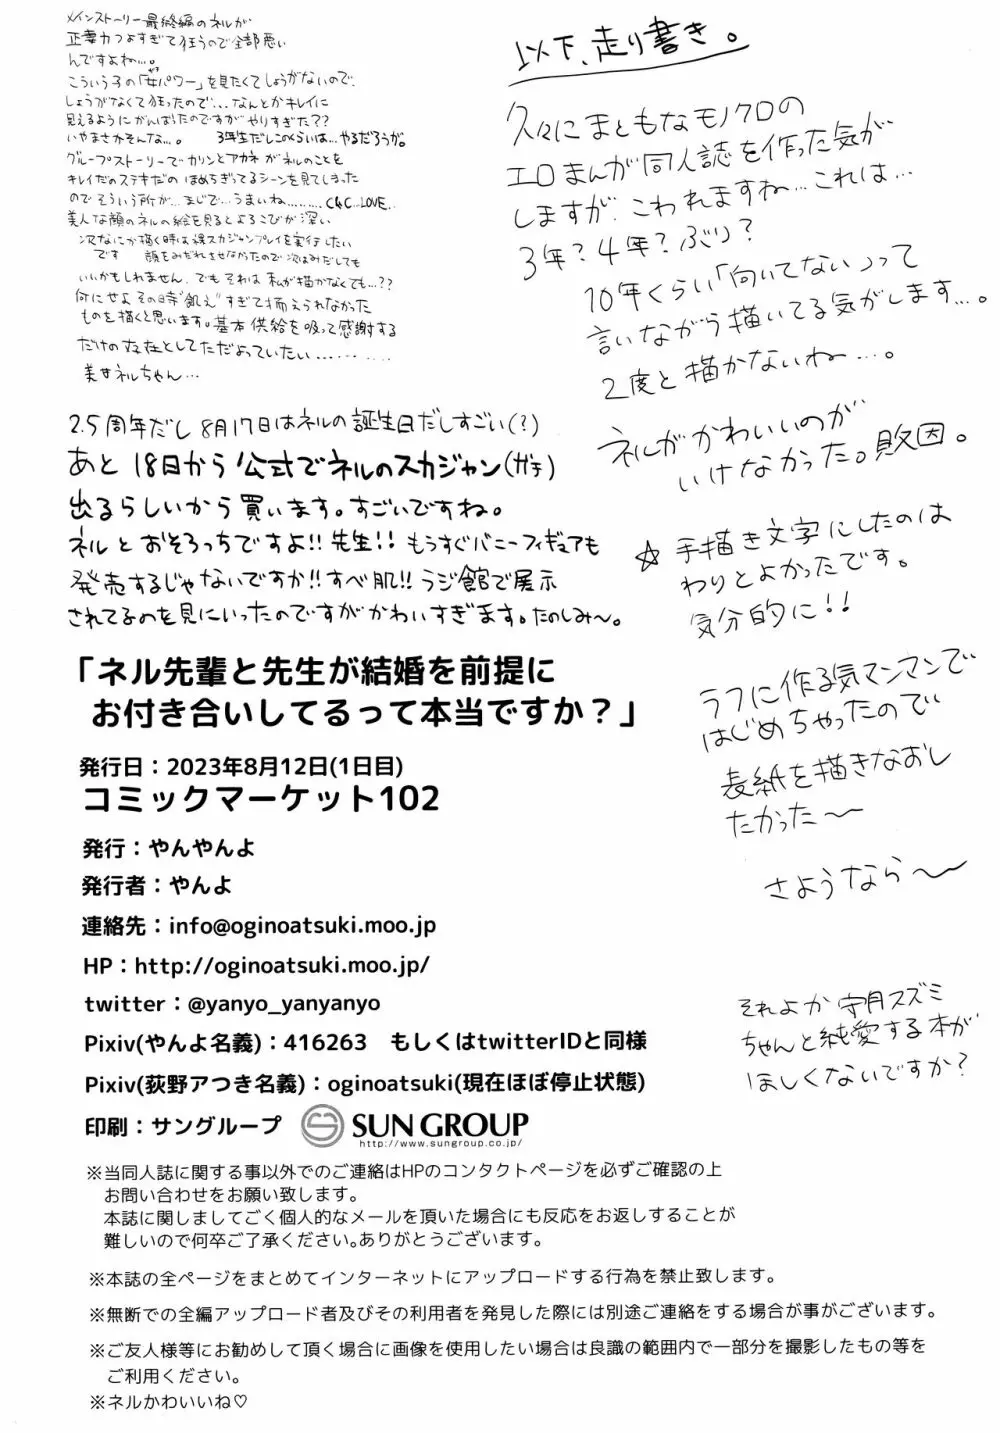 メインストーリー最終編のネルが
正妻力つよすぎて狂うので全部悪い
んですよね…。
こういう子の「女パワー」を見たくてしょうがないので、
しょうがなくて狂ったので…なんとかキレイに
見えるようにがんばったのですがやりすぎた??
いやまさかそんな…。 3年生だしこのくらいは…やるだろうが。
グループストーリーでカリンとアカネがネルのことを
キレイだのステキだのほめちぎってるシーンを見てしまった
のでそういう所が…まじで…うまいね………C&C…LOVE…
美人な顔のネルの絵を見るとよろこびが深い
次なにか描く時は裸スカジャンプレイを実行したい
です 顔をみだれさせなかったので次はみだしても
いいかもしれません、でもそれは私が描かなくても…??
何にせよその時"飢え"すぎて抑えられなかった
ものを描くと思います。基本供給を吸って感謝する
だけの存在としてただよっていたい…………
美女ネルちゃん…
2.5周年だし8月17日はネルの誕生日だしすごい(?)
あと18日から公式でネルのスカジャン(ガチ)
出るらしいから買います。すごいですね。
ネルとおそろっちですよ!!先生!!もうすぐバニーフィギュアも
発売するじゃないですか!!すべ肌!!ラジ館で展示
されてるのを見にいったのですがかわいすぎます。たのしみ〜。
以下、走り書き。
久々にまともなモノクロの
エロまんが同人誌を作った気が
しますが、こわれますね…これは…
3年?4年?ぶり?
10年くらい「向いてない」って
言いながら描いてる気がします…。
2度と描かないね…。
ネルがかわいいのが
いけなかった。敗因。
☆手描き文字にしたのは
わりとよかったです。
気分的に!!
ラフに作る気マンマンで
はじめちゃったので
表紙を描きなおし
たかった〜
さようなら〜
それよか守月スズミ
ちゃんと純愛する本が
ほしくないですか?
「ネル先輩と先生が結婚を前提に
お付き合いしてるって本当ですか？」
発行日：2023年8月12日(1日目)
コミックマーケット102
発行：やんやんよ
発行者：やんよ
連絡先：info@oginoatsuki.moo.jp
HP：http://oginoatsuki.moo.jp/
twitter：@yanyo_yanyanyo
Pixiv(やんよ名義)：416263　もしくはtwitterIDと同様
Pixiv(荻野アつき名義)：oginoatsuki(現在ほぼ停止状態)
印刷：サングループ SUN GROUP
http://www.sungroup.co.jp/
※当同人誌に関する事以外でのご連絡はHPのコンタクトページを必ずご確認の上
お問い合わせをお願い致します。
本誌に関しましてごく個人的なメールを頂いた場合にも反応をお返しすることが
難しいので何卒ご了承ください。ありがとうございます。
※本誌の全ページをまとめてインターネットにアップロードする行為を禁止致します。
※無断での全編アップロード者及びその利用者を発見した際には別途ご連絡をする場合が事がございます。
※ご友人様等にお勧めして頂く場合に画像を使用したい場合は良識の範囲内で一部分を撮影したもの等を
ご利用ください。
※ネルかわいいね♡